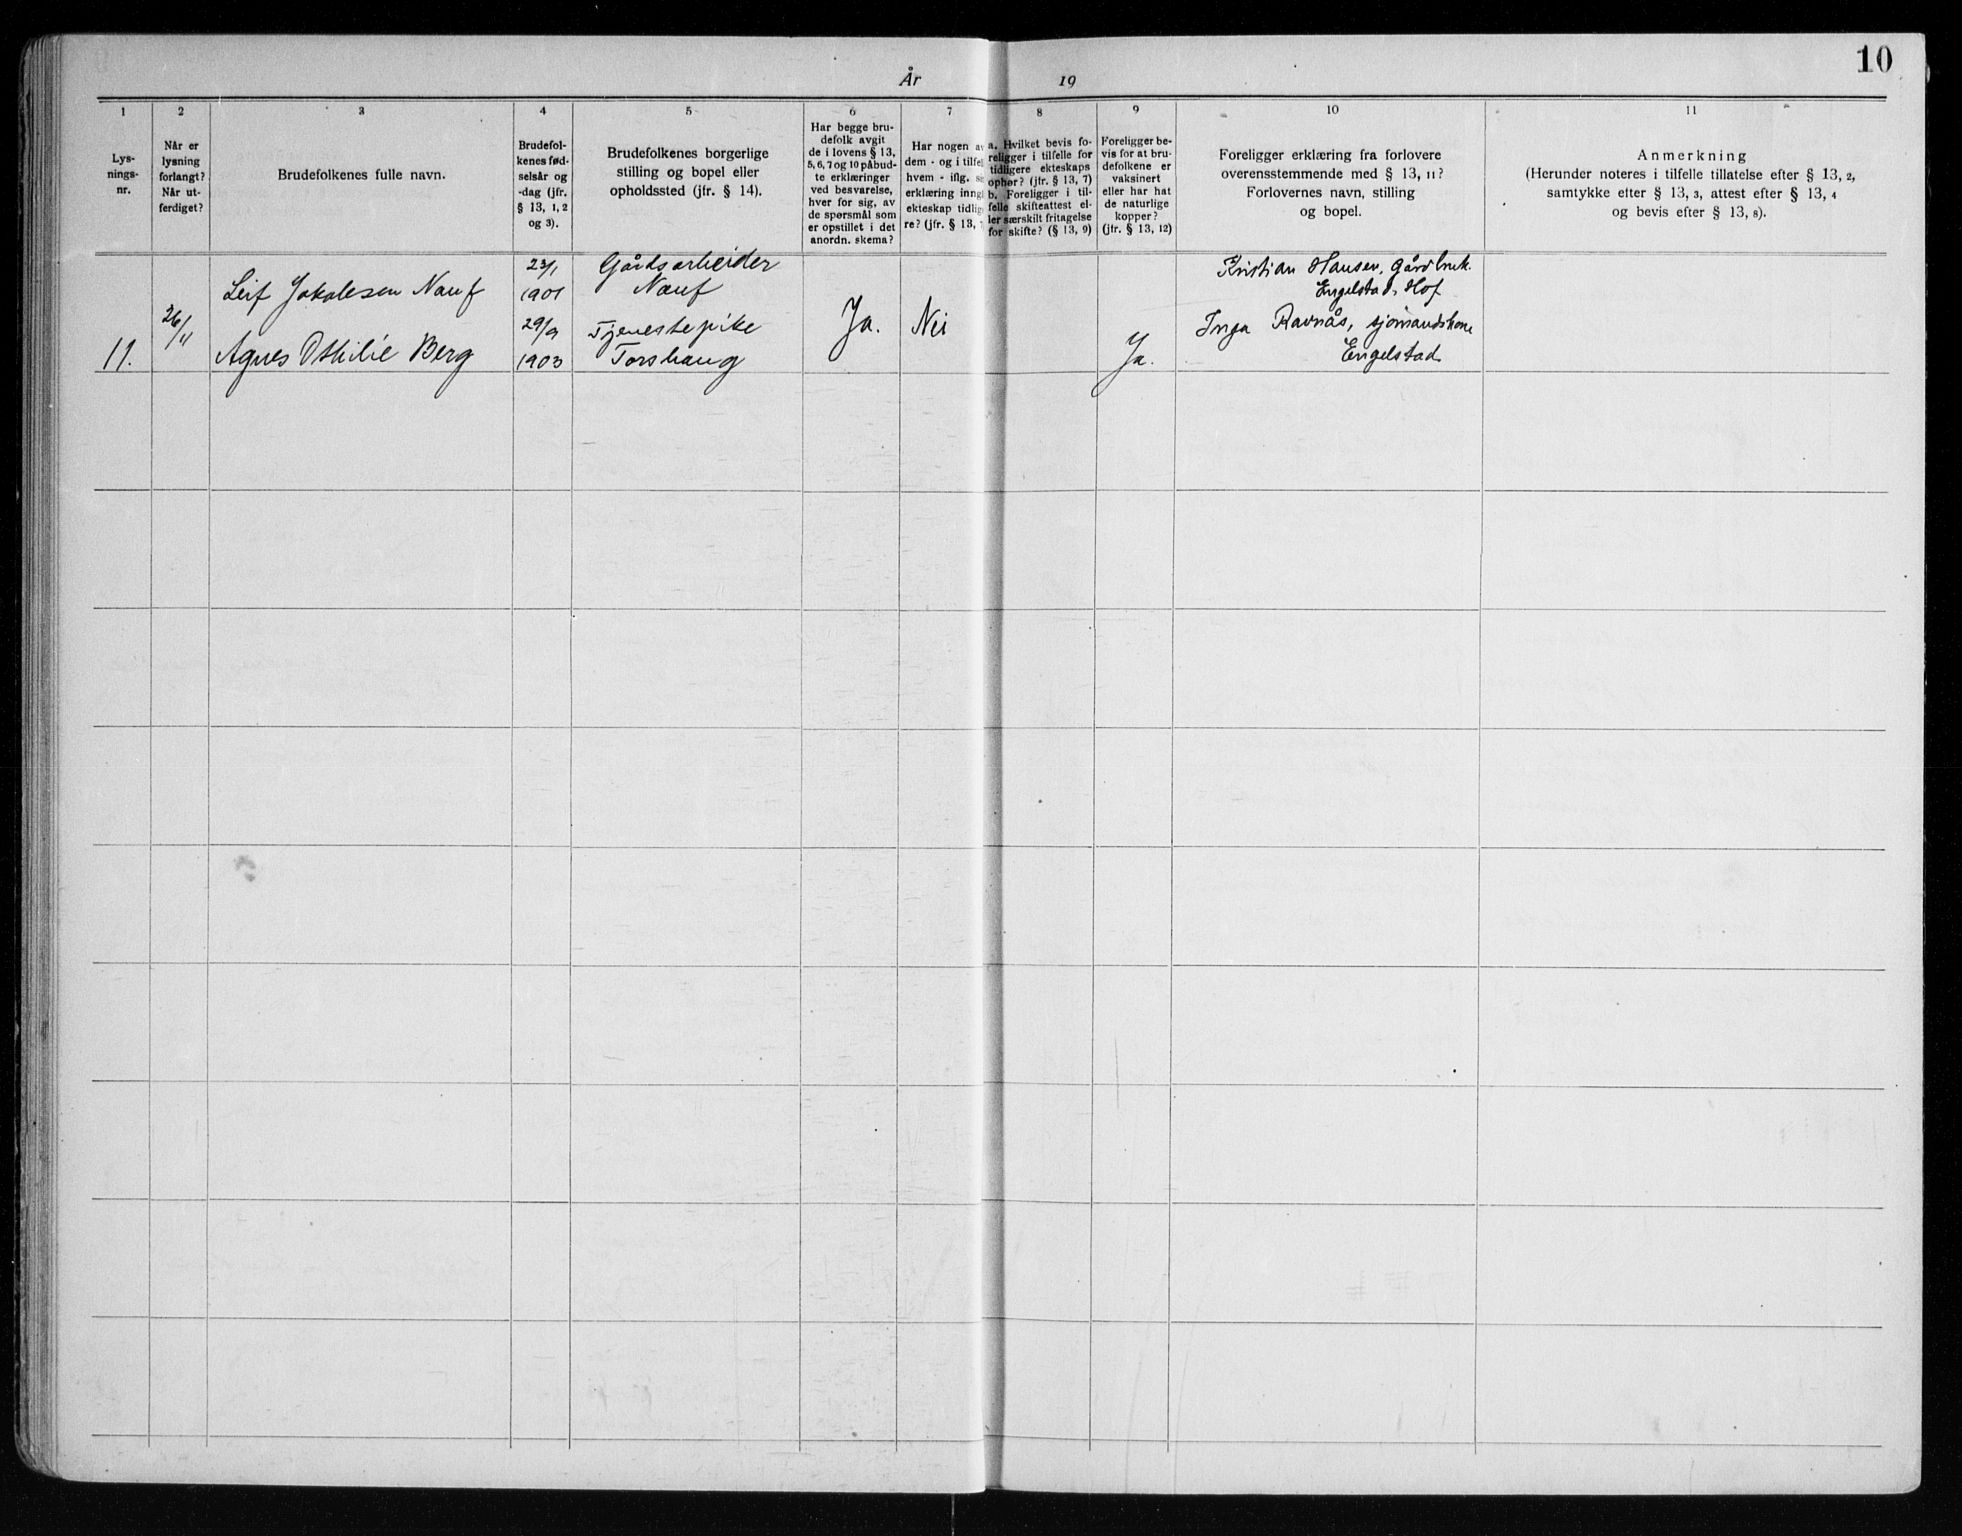 År 19
10
1
Lys-
nings-
nr.
2
Når er
lysning
forlangt?
Når ut-
ferdiget?
3
Brudefolkenes fulle navn.
4
Brudefol-
kenes fød-
selsår og
-dag (jfr.
§ 13, 1, 2
og 3).
5
Brudefolkenes borgerlige
stilling og bopel eller
opholdssted (jfr. § 14).
6
Har begge bru-
defolk avgit
de i lovens § 13,
5, 6, 7 og 10 påbud-
te erklæringer
ved besvarelse,
hver for sig, av
de spørsmål som
er opstillet i det
anordn. skema?
7
Har nogen av
dem - og i tilfel
hvem - iflg.
erklæring inng
ekteskap tidlig
re? (jfr. § 13,
8
a. Hvilket bevis fo-
religger i tilfelle for
tidligere ekteskaps
ophør? (jfr. § 13, 7)
b. Foreligger i til-
felle skifteattest el-
ler særskilt fritagelse
for skifte? (§ 13, 9)
9
Foreligger be-
vis for at bru-
defolkene er
vaksinert
eller har hat
de naturlige
kopper?
(jfr. § 13, 12)
10
Foreligger erklæring fra forlovere
overensstemmende med § 13, 11?
Forlovernes navn, stilling
og bopel.
11
Anmerkning
(Herunder noteres i tilfelle tillatelse efter § 13, 2,
samtykke efter § 13, 3, attest efter § 13, 4
og bevis efter § 13, 8).
11.
26/11
Leif Jakobsen Nauf
Agnes Othilie Berg
23/1
1901
29/9
1903
Gårdsarbeider
Nauf
Tjenestepike
Torshaug
Ja.
Nei
Ja.
Kristian Hansen, gårdbruk.
Engelstad, Hof
Inga Ravnås, sjømandskone
Engelstad